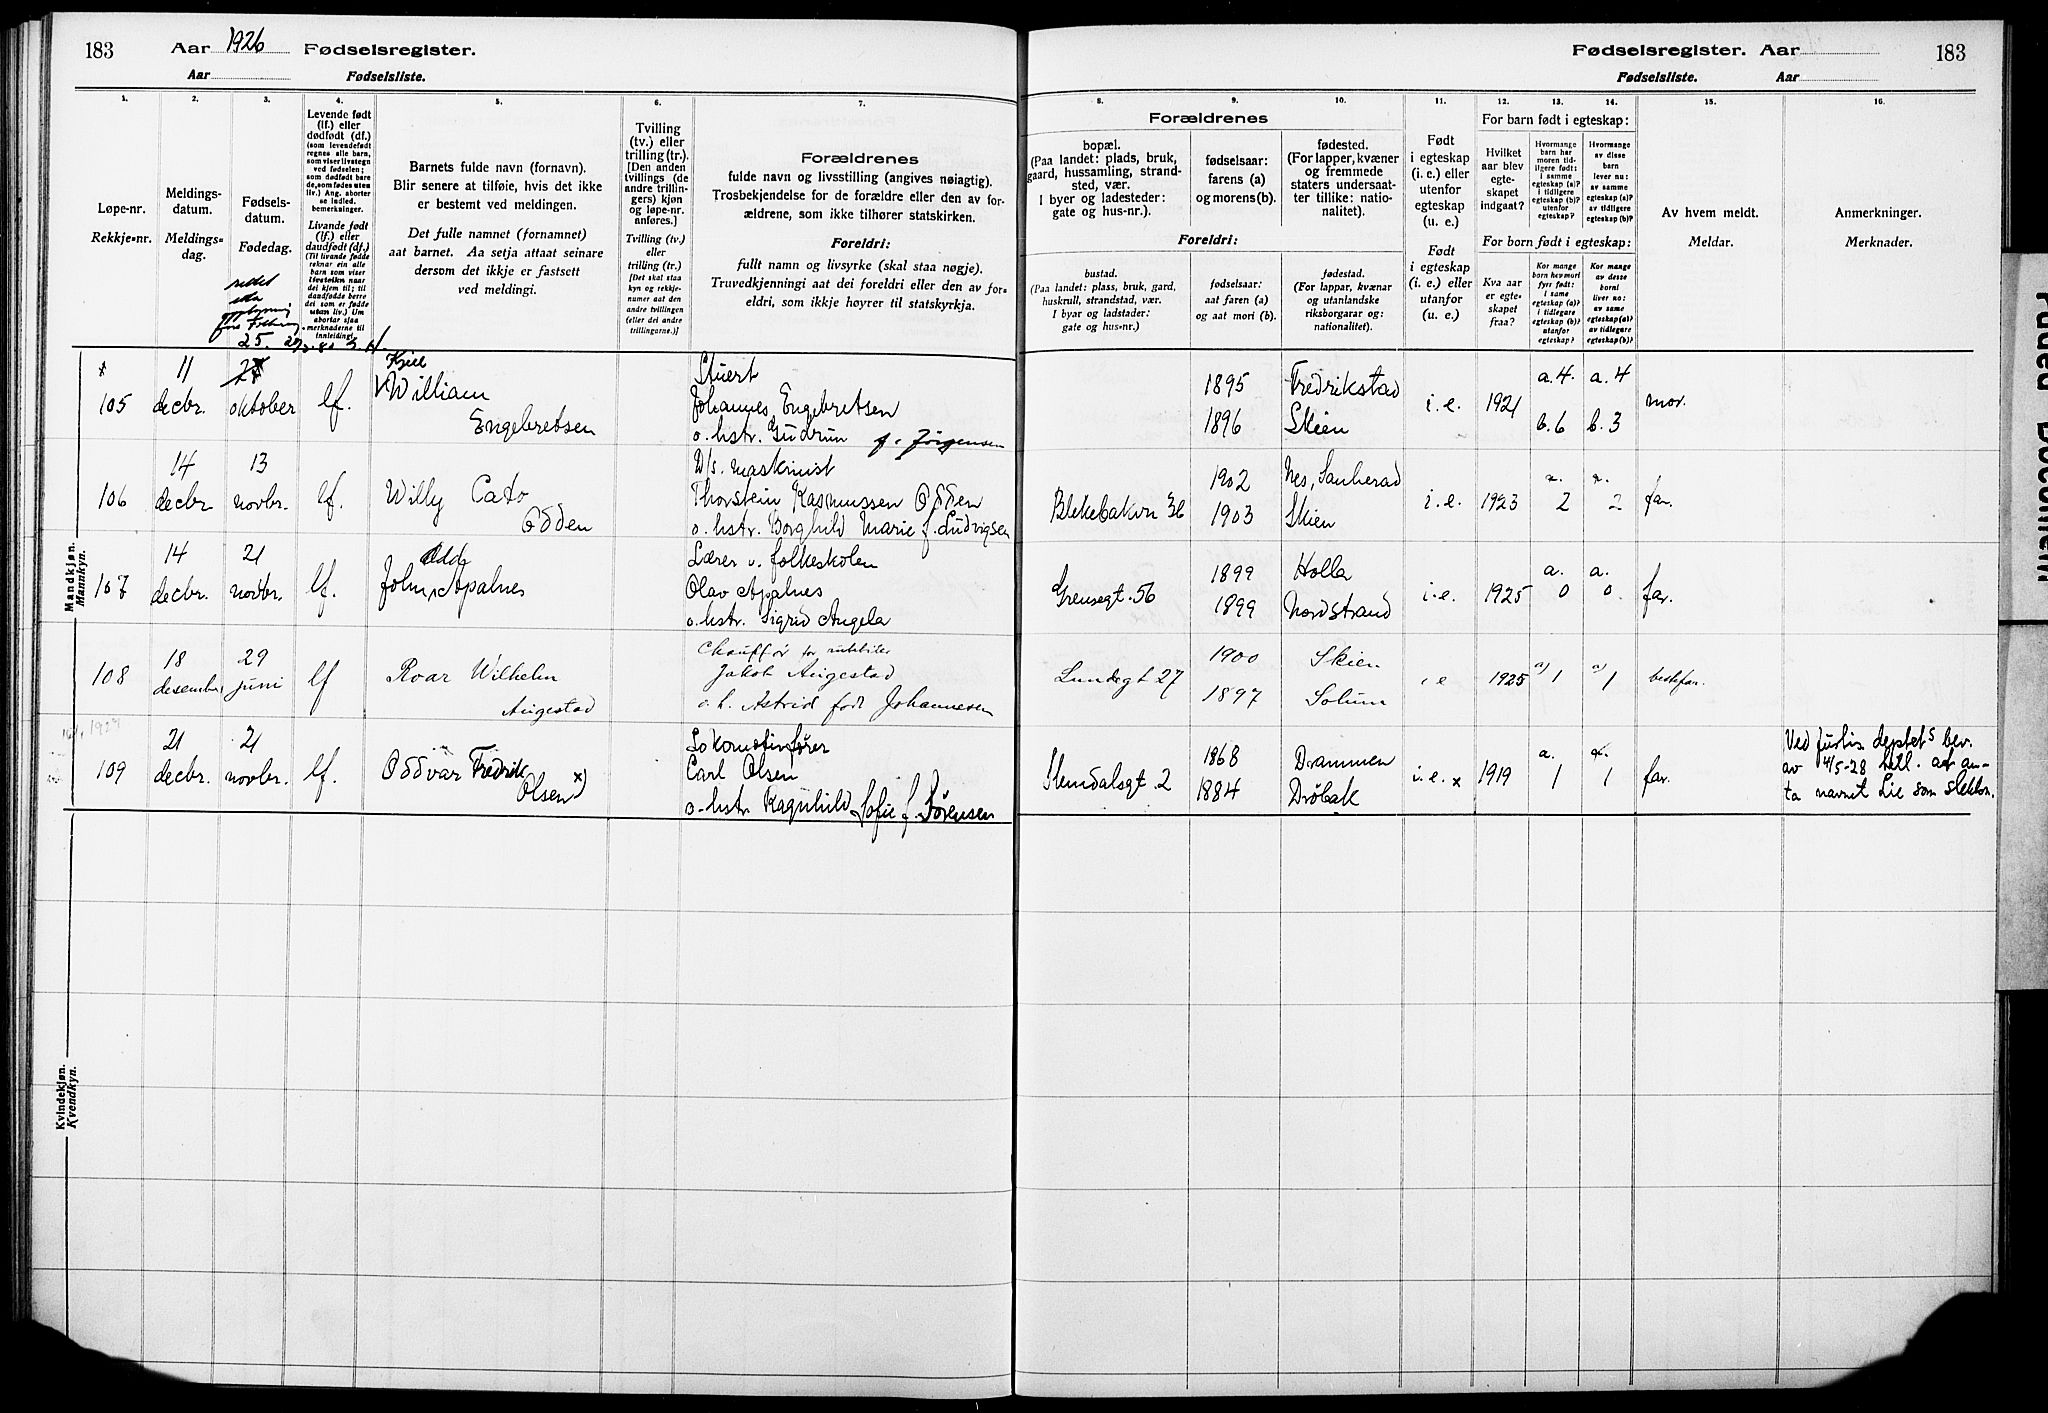 183
Aar 1926 Fødselsregister.
Aar Fødselsliste.
Fødselsregister. Aar
183
Fødselsliste. Aar
1.
Løpe-nr.
Rekkje-nr.
2.
Meldings-
datum.
Meldings-
dag.
3.
Fødsels-
datum.
Fødedag.
rettet
25.
4.
Levende født
(lf.) eller
dødfødt (df.)
(som levendefødt
regnes alle barn,
som viser livstegn
ved fødselen;
som dødfødt bare
de, som fødes uten
liv.) Ang. aborter
se indled.
bemerkninger.
Livande født
(lf.) eller
daudfødt (df.)
(Til livande fødde
reknar ein alle
barn som viser
livsteikn naar
dei kjem til; til
daudfødde berre
dei som er fødde
utan liv.) Um
abortar sjaa
merknaderne til
innleiding.
5.
Barnets fulde navn (fornavn).
Blir senere at tilføie, hvis det ikke
er bestemt ved meldingen.
Det fulle namnet (fornamnet)
aat barnet. Aa setja attaat seinare
dersom det ikkje er fastsett
ved meldingi.
6.
Tvilling
(tv.) eller
trilling (tr.).
[Den anden
tvillings (de
andre trillin-
gers) kjøn
og løpe-nr.
anføres.]
Tvilling (tv.)
eller
trilling (tr.)
[Det skal staa
kyn og rekkje-
numer aat den
andre tvillingen
(eller dei andre
trillingarne.)]
7.
Forældrenes
fulde navn og livsstilling (angives nøiagtig).
Trosbekjendelse for de forældre eller den av for-
ældrene, som ikke tilhører statskirken.
Foreldri:
fullt namn og livsyrke (skal staa nøgje).
Truvedkjenningi aat dei foreldri eller den av for-
eldri, som ikkje høyrer til statskyrkja.
8. 9. 10.
Forældrenes
bopæl.
(Paa landet: plads, bruk,
gaard, hussamling, strand-
sted, vær.
I byer og ladesteder:
gate og hus-nr.).
fødselsaar:
farens (a)
og morens (b).
fødested.
(For lapper, kvæner
og fremmede
staters undersaat-
ter tillike: natio-
nalitet).
Foreldri:
bustad.
(Paa landet: plass, bruk, gard,
huskrull, strandstad, vær.
I byar og ladstader:
gate og hus-nr.)
fødselsaar:
aat faren (a)
og aat mori (b).
fødestad.
(For lappar, kvænar
og utanlandske
riksborgarar og:
nationalitet).
11.
Født
i egteskap
(i. e.) eller
utenfor
egteskap
(u. e.)
Født
i egteskap
(i. e.) eller
utanfor
(u. e.)
12. 13. 14.
For barn født i egteskap:
Hvilket
aar blev
egte-
skapet
indgaat?
Hvormange
barn har
moren tid-
ligere født:
i samme
egteskap (a)?
i tidligere
egteskap (b)?
utenfor
egteskap?
Hvormange
av disse
barn
lever nu:
av samme
egteskap (a)?
av tidligere
egteskap (b)?
For born født i egteskap:
Kva aar
er egte-
skapet
fraa?
Kor mange
born hev mori
fyrr født:
i same
egteskap (a)?
i tidlegare
egteskap (b)?
utanfor
egteskap?
Kor mange
av desse
borni
liver no:
av same
egteskap (a)?
av tidlegare
egteskap (b)?
15.
Av hvem meldt.
Meldar.
16.
Anmerkninger.
Merknader.
Mandkjøn.
Mannkyn.
105
11
decbr.
oktober
lf.
Kjell
William
Engebretsen
Stuert
Johannes Engebretsen
o. hstr. Gudrun f. Jörgensen
1895
1896
Fredrikstad
Skien
i. e.
1921
a. 4.
b. 6
a. 4
b. 3
mor.
106
14
decbr.
13
novbr.
lf.
Willy Cato
Odden
D/s. maskinist
Thorstein Rasmussen Odden
o. hstr. Borghild Marie f. Ludvigsen
Blekebakvn 36
1902
1903
Nes, Sauherad
Skien
i. e.
1923
a.
2
a.
2
far.
107
14
decbr.
21
novbr.
lf.
Odd
John Apalnes
Lærer v. folkeskolen
Olav Apalnes
o. hstr. Sigrid Angela
Grensegt. 56
1899
1899
Holla
Nordstrand
i. e.
1925
a.
0
a.
0.
far.
108
18
desember
29
juni
lf
Roar Wilhelm
Augestad
Chauffør for rutebiler
Jakob Augestad
o. h. Astrid født Johannesen
Lundegt 27
1900
1897
Skien
Solum
i e
1925
a) 1
a) 1
bestefar.
109
21
decbr.
21
novbr.
lf.
Oddvar Fredrik
Olsen x)
Lokomotivfører
Carl Olsen
o. hstr. Ragnhild Sofie f. Sørensen
Slemdalsgt. 2
1868
1884
Drammen
Drøbak
i. e. x
1919
a.
1
a.
1
far.
Ved justis deptets bev.
av 4/5-28 till. at an-
ta navnet Lie som slektsn.
Kvindekjøn.
Kvendkyn.